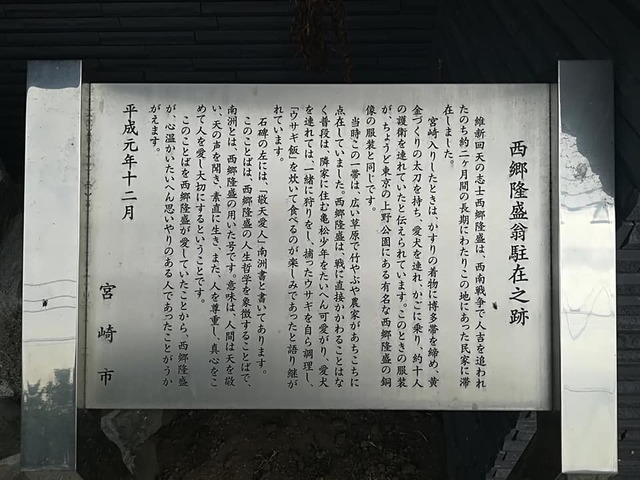 西郷隆盛翁駐在之跡
維新回天の志士西郷隆盛は、西南戦争で人吉を追われ
たのち約二ヶ月間の長期にわたりこの地にあった民家に滞
在しました。
宮崎入りしたときは、かすりの着物に博多帯を締め、黄
金づくりの太刀を持ち、愛犬を連れ、かごに乗り、約十人
の護衛を連れていたと伝えられています。このときの服装
が、ちょうど東京の上野公園にある有名な西郷隆盛の銅
像の服装と同じです。
当時この一帯は、広い草原で竹やぶや農家があちこちに
点在していました。西郷隆盛は、戦に直接かかわることはな
く普段は、隣家に住む亀松少年をたいへん可愛がり、愛犬
を連れては、一緒に狩りをし、捕ったウサギを自ら調理し、
「ウサギ飯」を炊いて食べるのが楽しみであったと語り継が
れています。
石碑の左には、「敬天愛人」南洲書と書いてあります。
このことばは、西郷隆盛の人生哲学を象徴することばで、
南洲とは、西郷隆盛の用いた号です。意味は、人間は天を敬
い、天の声を聞き、素直に生き、また、人を尊重し、真心をこ
めて人を愛し大切にするということです。
このことばを西郷隆盛が愛していたことから、西郷隆盛
が、心温かいたいへん思いやりのある人であったことがうか
がえます。
平成元年十二月
宮崎市